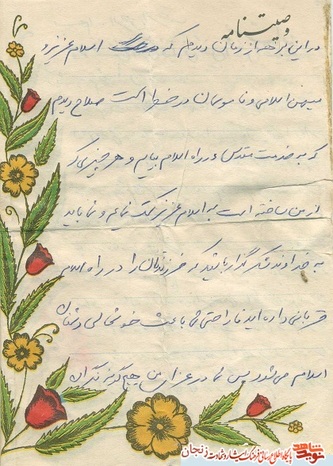 وصیتنامه
در این برهه از زمان دیدم که اسلام عزیز و
میهن اسلامی و ناموسمان در خطر است صلاح دیدم
که به خدمت مقدس و در راه اسلام بیایم و هر چیزی که
از من ساخته است به اسلام عزیز کمک نمایم و شما باید
به خداوند شکر گذار باشید که فرزندتان را در راه اسلام
قربانی داده اید ناراحتی شما باعث خوشحالی دشمنان
اسلام می شود پس شما در عزای من هیچ گونه نگران
نوید شاهد
پایگاه اطلاع رسانی فرهنگ ایثار و شهادت زنجان